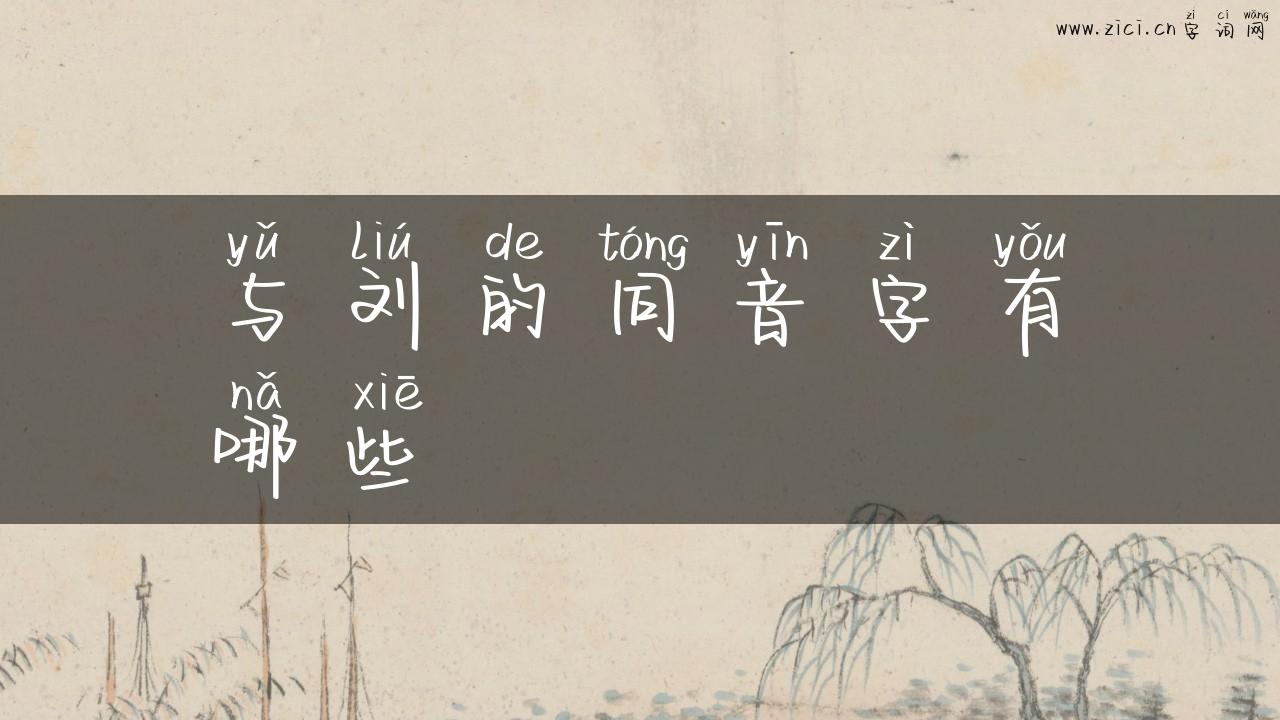 zì cí wǎng
www.zici.cn 字 词 网
yǔ liú de tóng yīn zì yǒu
与 刘 的 同 音 字 有
nǎ xiē
哪 些